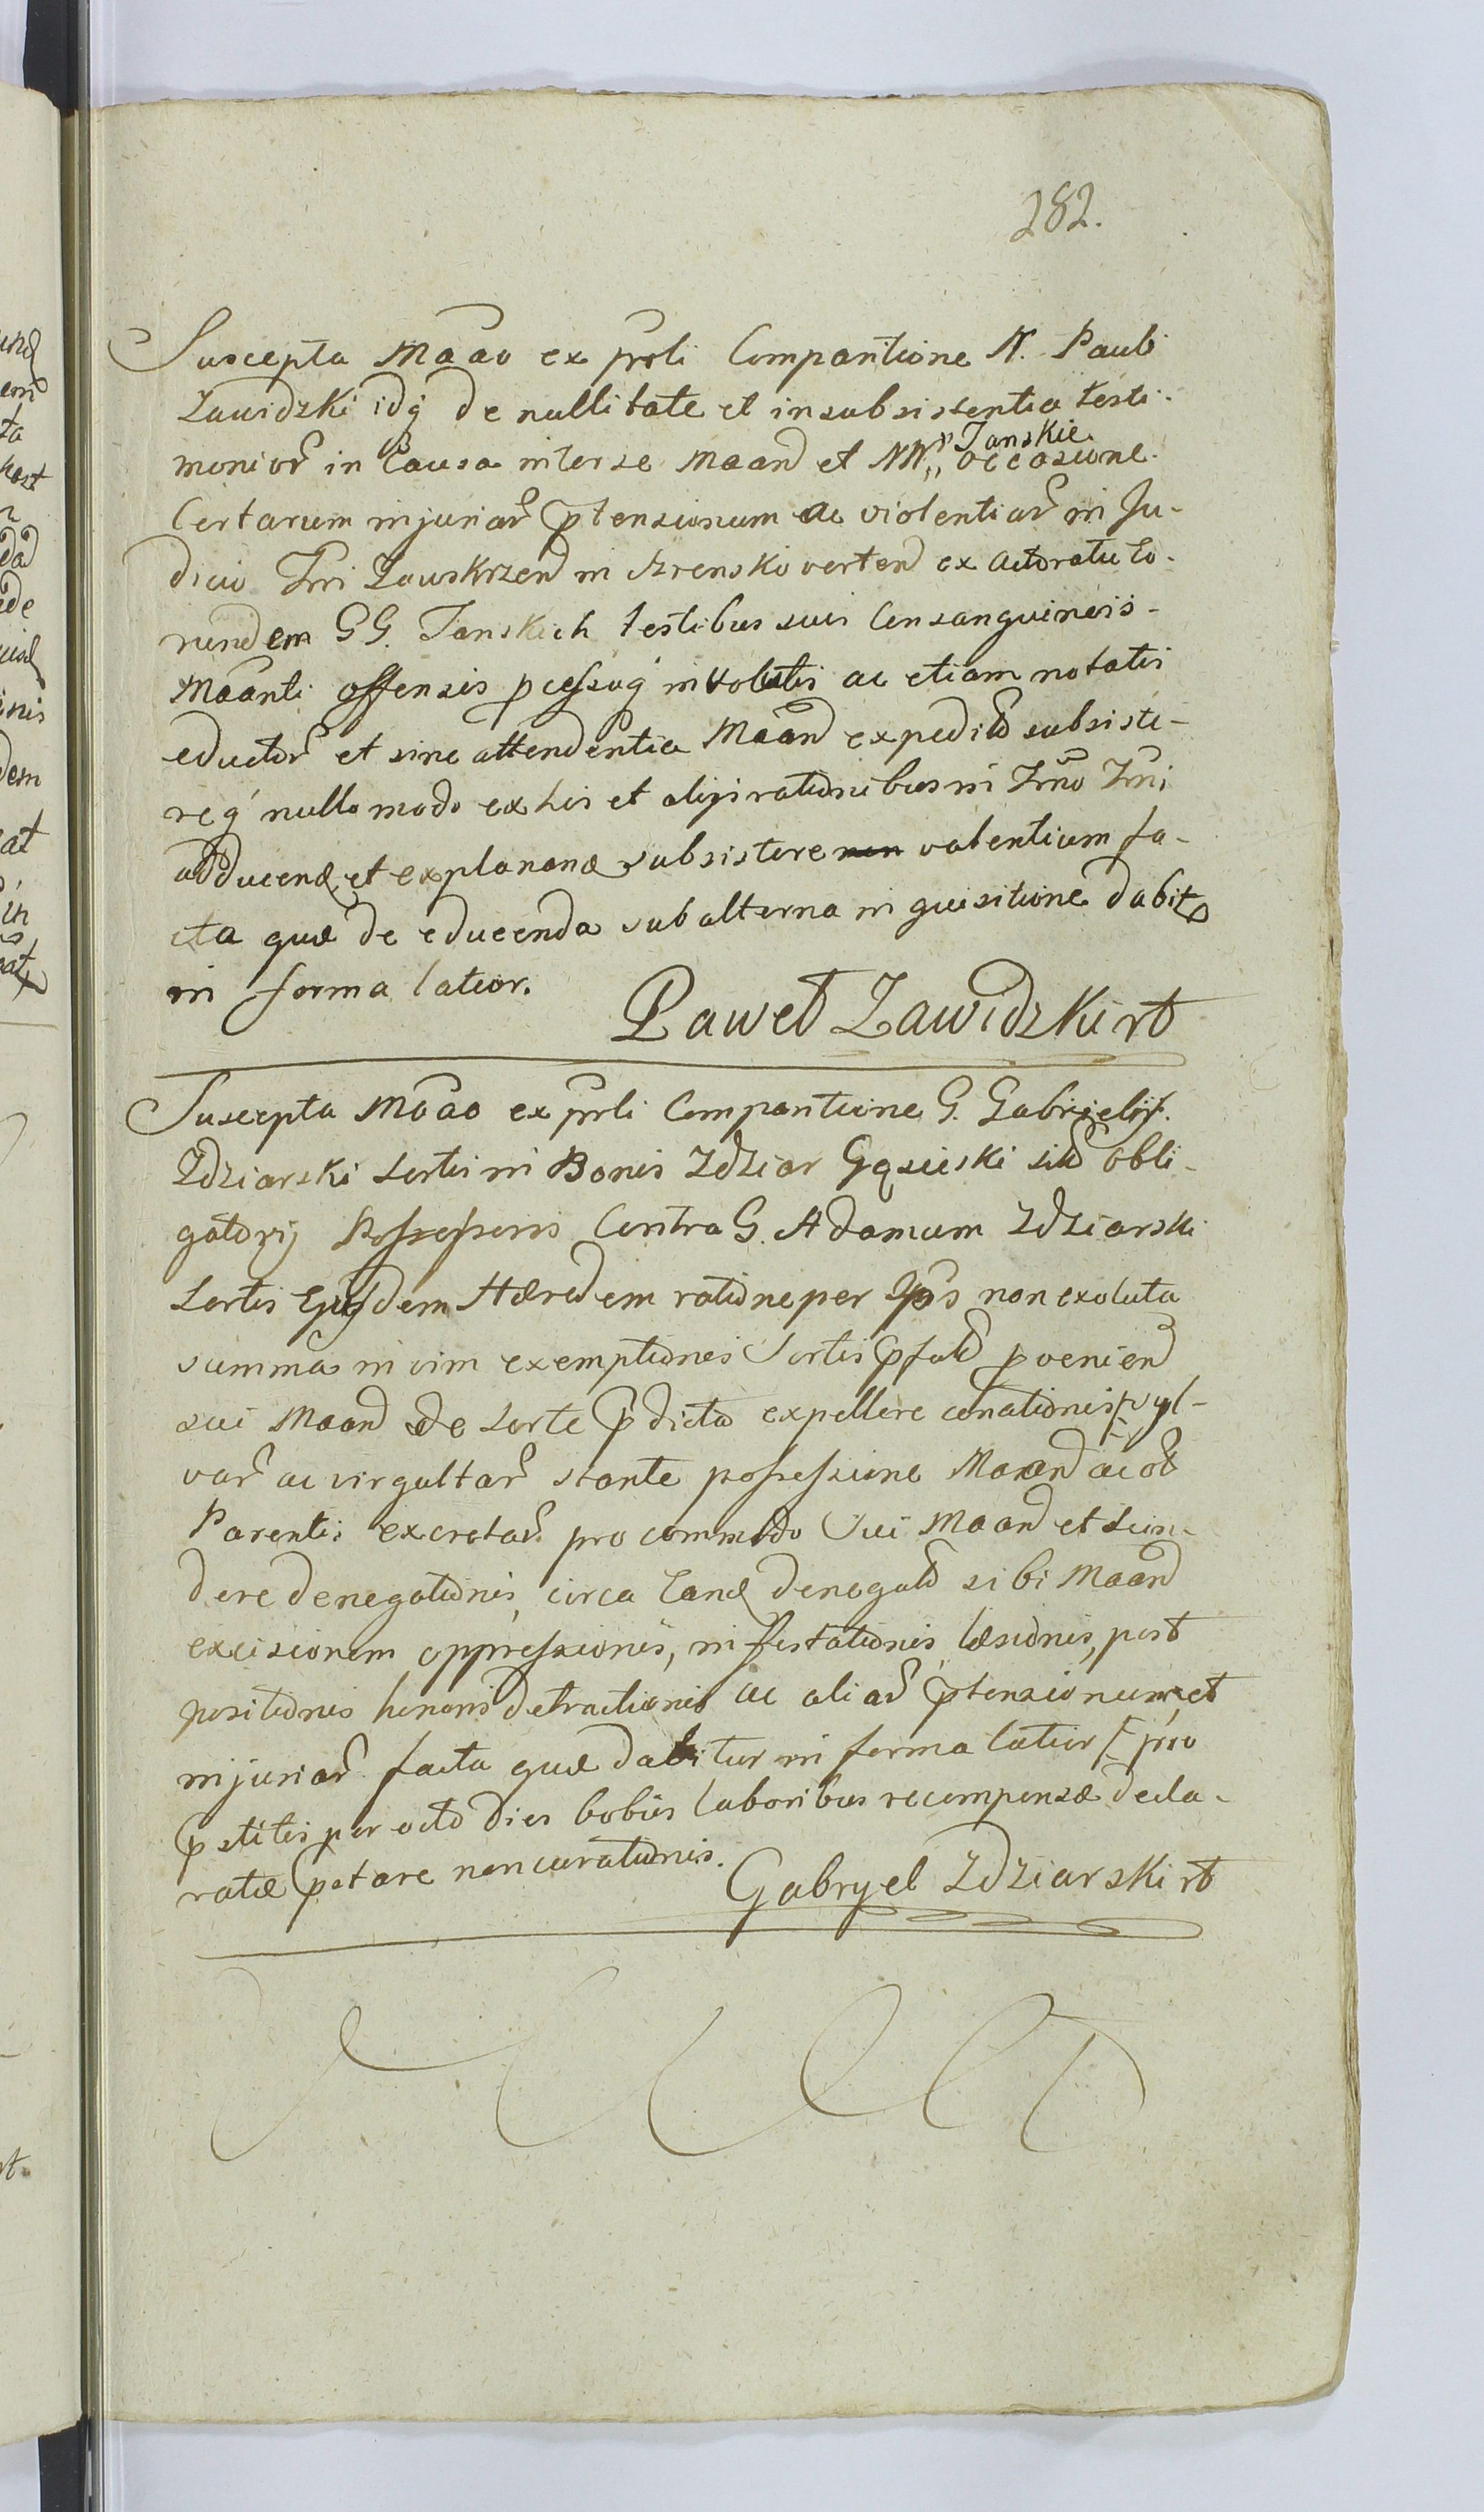 282.
Suscepta Maao ex prli Comparitione N. Pauli
Zawidzki idq de nullitate et insubsistentia testi-
monior in Causa inter se Maand et NN. Janskie occasione
Certarum injuriar ptensionum ac violentiar in Ju-
dicio Trri Zawskrzen in Szrensko verten ex actoratu eo-
rundem GG. Janskich testibus sui Consanguineis
Maanti offensis pcessuq involutis ac etiam notatis
eductor et sine attendentia Maand expedit subsiste-
req nullo modo ex his et alijs rationibus in Trmo Trri
adducend et explanand subsistere non valentium fa-
cta quæ de educenda subalterna inquisitione dabit
in forma latior.
Paweł Zawidzki rt
Suscepta Maao ex prli Comparitione G. Gabrielis
Zdziarski sortis in Bonis Zdziar Gąsieski sit obli-
gatorij Possessoris Contra G. Adamum Zdziarski
Sortis Ejusdem Hæredem ratione per Ips non exoluta
summa in vim exemptionis Sortis pfat pvenien
sui Maand de Sorte pdicta expellere conationis syl-
var ac virgultar stante possessione Maand ac ol
Parentis excretar pro commodo Sui Maand et scin-
dere denegationis, circa eand denegat sibi Maand
excisionem oppressionis, infestationis læsionis, post
positionis honoris detractionis ac aliar ptensionum et
injuriar facta quæ dabitur in forma latior pro
pstitis per octo dies bobus laboribus recompensæ decla-
ratæ pstare non curationis.
Gabryel Zdziarski rt